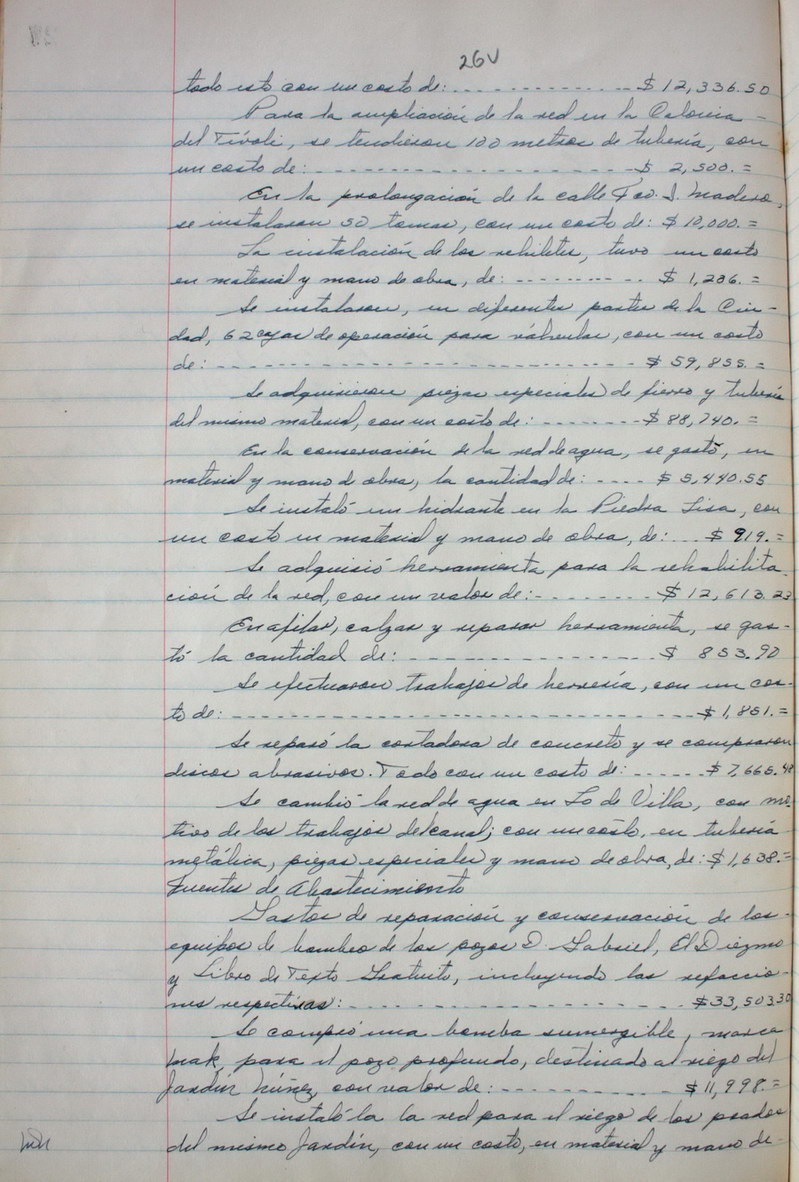 26V
todo esto con un costo de: - - - - - - - - - - - - - $ 12,336.50
Para la ampliación de la red en la Colonia
del Tívoli, se tendieron 100 metros de tubería, con
un costo de: - - - - - - - - - - - - - - - - - - - - $ 2,500.=
En la prolongación de la calle Fco. I. Madero,
se instalaron 50 tomas, con un costo de: $ 10,000.=
La instalación de los rehiletes, tuvo un costo
en material y mano de obra, de: - - - - - - - - - $ 1,286.=
Se instalaron, en diferentes partes de la Ciu-
dad, 62 cajas de operación para válvulas, con un costo
de: - - - - - - - - - - - - - - - - - - - - - - - - - - - $ 59,855.=
Se adquirieron piezas especiales de fierro y tubería
del mismo material, con un costo de: - - - - - - - $ 88,740.=
En la conservación de la red de agua, se gastó, en
material y mano de obra, la cantidad de: - - - - $ 5,440.55
Se instaló un hidrante en la Piedra Lisa, con
un costo en material y mano de obra, de: - - - $ 919.=
Se adquirió herramienta para la rehabilita-
ción de la red, con un valor de: - - - - - - - - $ 12,613.23
En afilar, calzar y reparar herramienta, se gas-
tó la cantidad de: - - - - - - - - - - - - - - - - $ 853.90
Se efectuaron trabajos de herrería, con un cos-
to de: - - - - - - - - - - - - - - - - - - - - - - - - - - $ 1,851.=
Se reparó la cortadora de concreto y se compraron
discos abrasivos. Todo con un costo de: - - - - - - $ 7,665.48
Se cambió la red de agua en Lo de Villa, con mo-
tivo de los trabajos del canal; con un costo, en tubería
metálica, piezas especiales y mano de obra, de: $ 1,638.=
Fuentes de Abastecimiento
Gastos de reparación y conservación de los
equipos de bombeo de los pozos D. Gabriel, El Diezmo
y Libro de Texto Gratuito, incluyendo las refaccio-
nes respectivas: - - - - - - - - - - - - - - - - - - - $33,503.30
Se compró una bomba sumergible, marca
para el pozo profundo, destinado al riego del
Jardín Núñez, con valor de: - - - - - - - - - - - $ 11,998.=
Se instaló la la red para el riego de los prados
del mismo Jardín, con un costo, en material y mano de